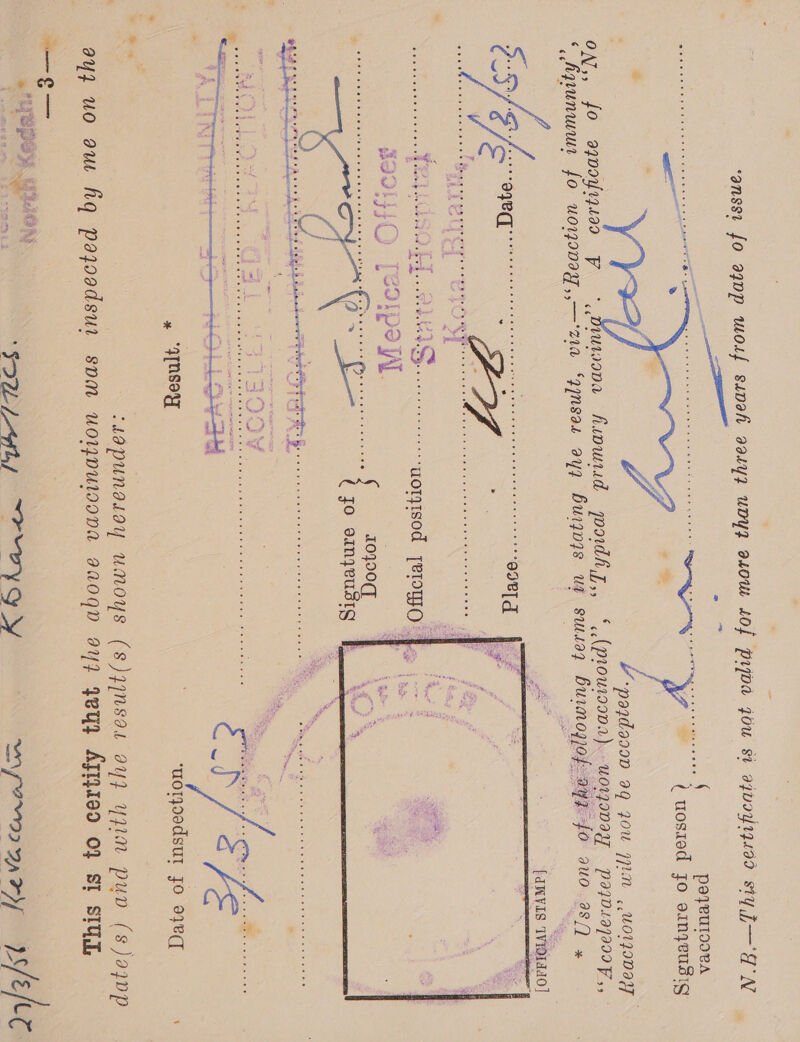 —3—
This is to certify that the above vaccination was inspected by me on the
date(s) and with the result(s) shown hereunder:—
Date of inspection. Result. *
3/3/53 REACTION OF IMMUNITY,
ACCELERATED REACTION
TYPICAL PRIMARY VACCINIA
Signature of } Doctor
Official position Medical Officer
State Hospital,
Kota Bharu,
Place KB Date 3/3/53
[OFFICIAL STAMP]
* Use one of the following terms in stating the result, viz.—“Reaction of immunity”,
“Accelerated Reaction (vaccinoid)”, “Typical primary vaccinia”. A certificate of “No
reaction” will not be accepted.
Signature of person } vaccinated
N.B.—This certificate is not valid for more than three years from date of issue.
27/3/51 Revaccination
North Kedah.